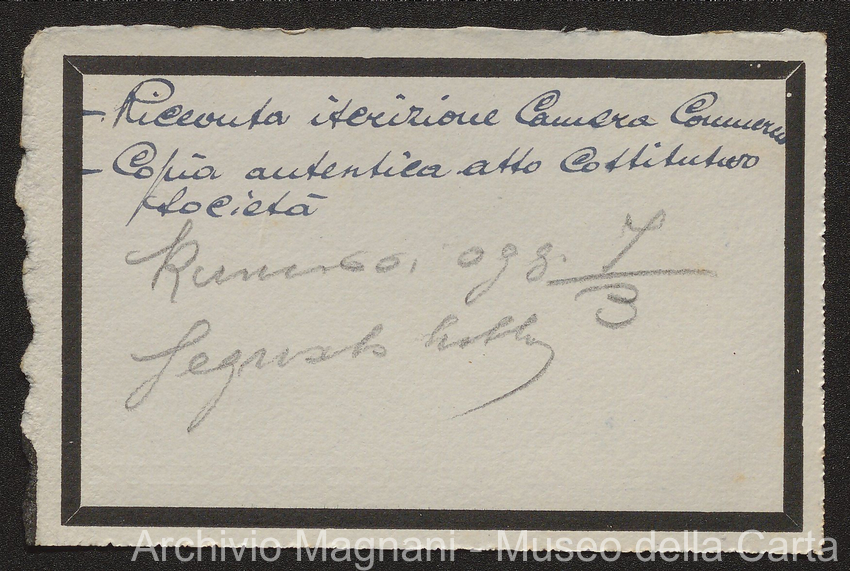 - Ricevuta iscrizione Camera Commercio
- Copia autentica atto Costitutivo
società
ogg. 7
3
Archivio Magnani - Museo della Carta